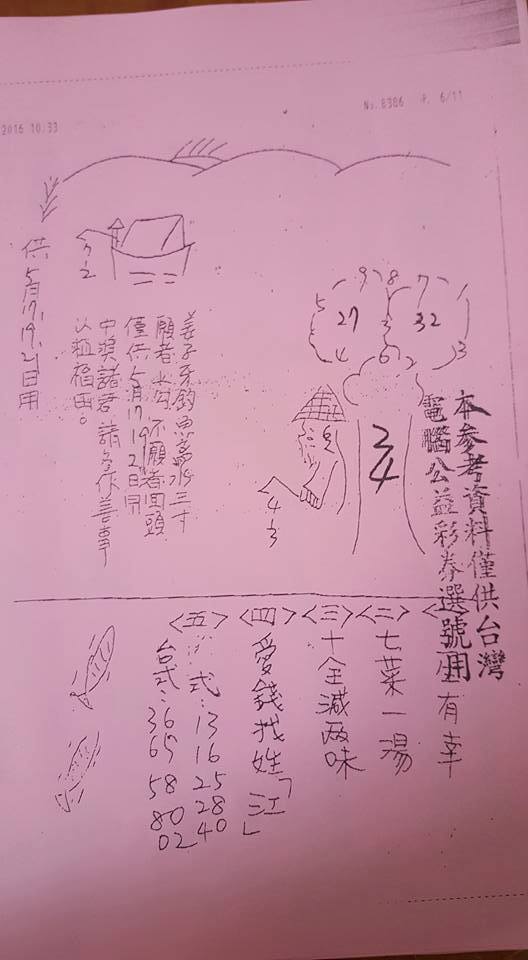 2016 10.33
No.8386 P. 6/11
本參考資料僅供台灣
電腦公益彩券選號用
9 8 7
5 27 3 32 1
4 6 2 3
2/4
4/3
7/2
姜子牙釣魚離水三寸
願者上勾不願者回頭
僅供5月17、19、21日用
中獎諸君請多作善事
以植福田。
供5月17、19、21日用
有幸
<二>七菜一湯
<三>十全減兩味
<四>愛錢找姓「江」
<五>式：13 16 25 28 40
台式：36 65 58 80 02